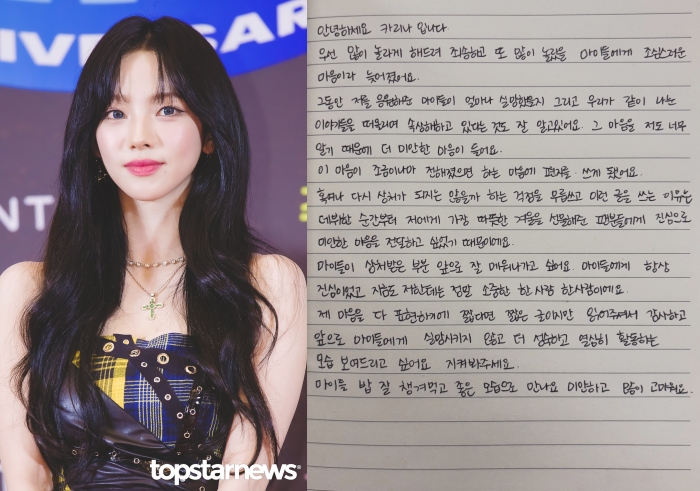 IVERSAR
NT
topstarnews
안녕하세요 카리나 입니다
우선 많이 놀라게 해드려 죄송하고 또 많이 놀랐을 마이들에게 조심스러운
마음이라 늦어졌어요.
그동안 저를 응원해준 마이들이 얼마나 실망했을지 그리고 우리가 같이 나눈
이야기들을 떠올리며 속상해하고 있다는 것도 잘 알고있어요. 그 마음을 저도 너무
알기 때문에 더 미안한 마음이 들어요.
이 마음이 조금이나마 전해졌으면 하는 마음에 편지를 쓰게 됐어요.
혹여나 다시 상처가 되지는 않을까 하는 걱정을 무릅쓰고 이런 글을 쓰는 이유는
데뷔한 순간부터 저에게 가장 따뜻한 겨울을 선물해준 팬분들에게 진심으로
미안한 마음을 전달하고 싶었기 때문이에요.
마이들이 상처받은 부분 앞으로 잘 메워나가고 싶어요. 마이들에게 항상
진심이었고 지금도 저한테는 정말 소중한 한 사람 한사람이에요.
제 마음을 다 표현하기에 짧다면 짧은 글이지만 읽어주셔서 감사하고
앞으로 마이들에게 실망시키지 않고 더 성숙하고 열심히 활동하는
모습 보여드리고 싶어요 지켜봐주세요.
마이들 밥 잘 챙겨먹고 좋은 모습으로 만나요 미안하고 많이 고마워요.